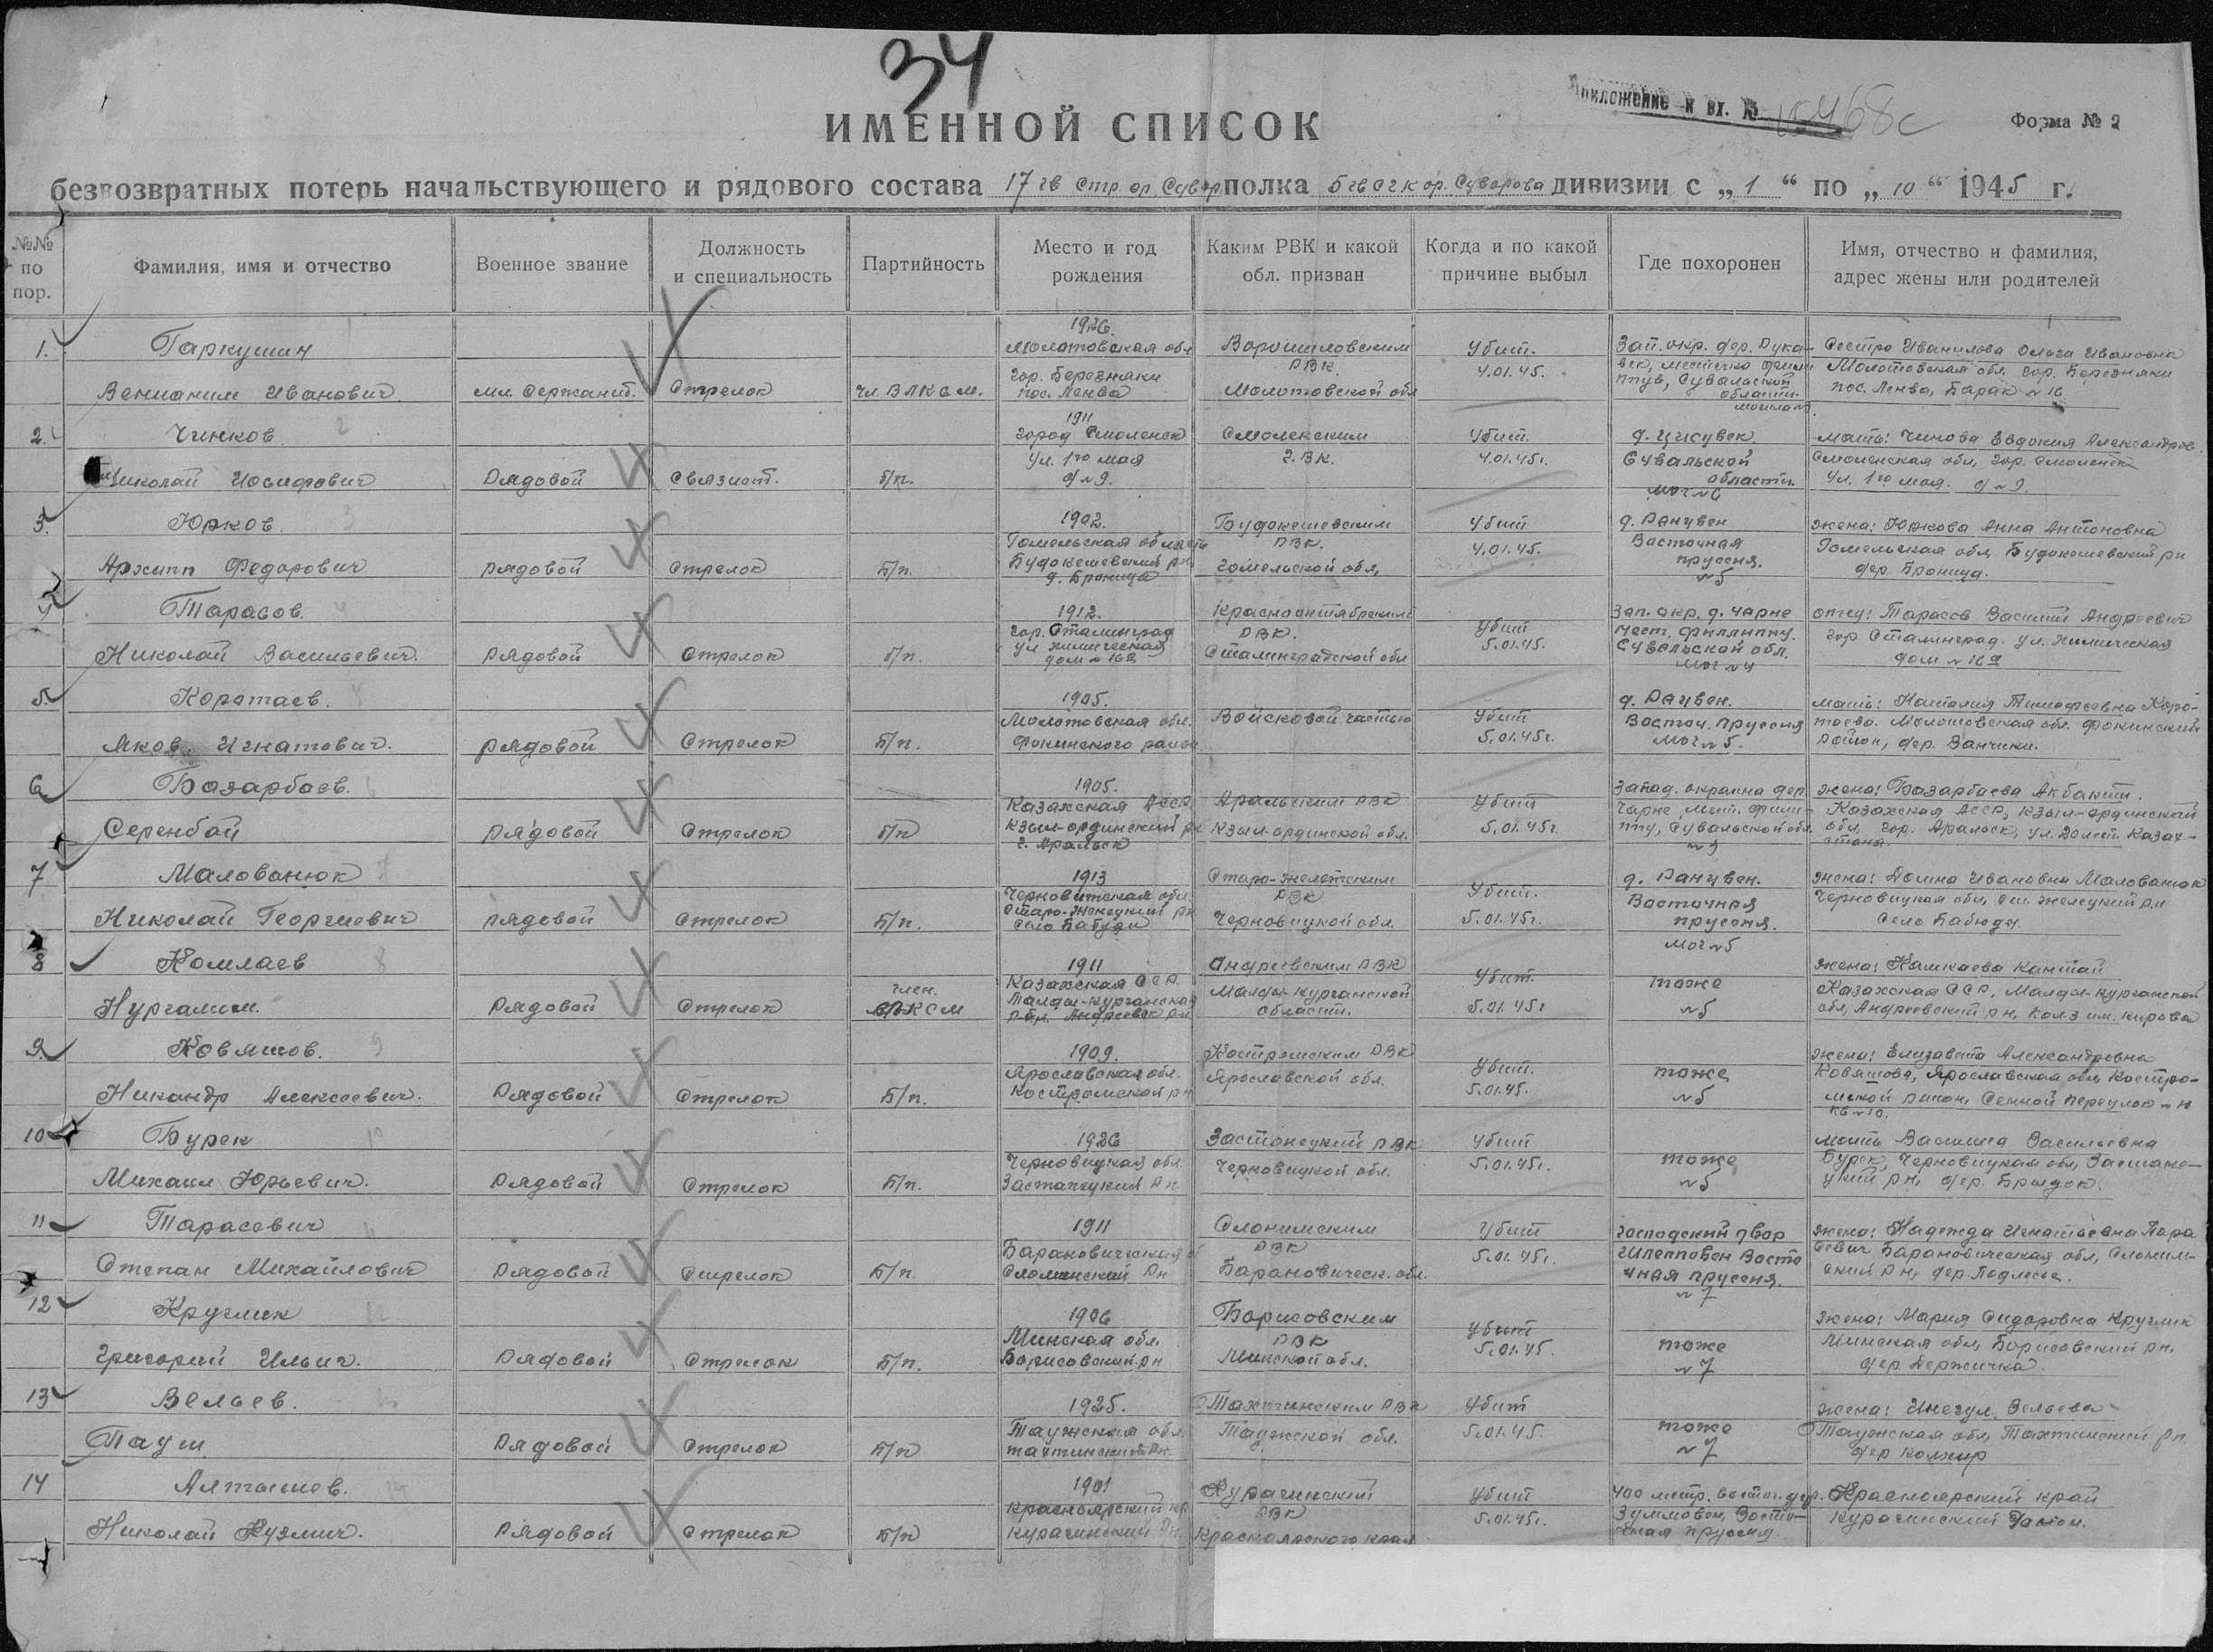 34
ИМЕННОЙ СПИСОК
Приложение к вх. №
Форма № 2
безвозвратных потерь начальствующего и рядового состава 17 гв стр. ор. Сувор полка 5 гв с г к ор. Суворова дивизии с „1“ по „10“ 1945 г.
№№ по пор.
Фамилия, имя и отчество
Военное звание
Должность и специальность
Партийность
Место и год рождения
Каким РВК и какой обл. призван
Когда и по какой причине выбыл
Где похоронен
Имя, отчество и фамилия, адрес жены или родителей
1. Гаркушин
Вениамин Иванович
мл. Сержант.
Стрелок
чл. ВЛКСМ.
1926.
Молотовская обл
гор. Березняки
пос. Ленва
Ворошиловским
РВК.
Молотовской обл
Убит.
4.01.45.
Зап. окр. дер.
Сувальской
области.
Сестра Иванилова Ольга Ивановна
Молотовская обл. гор. Березняки
пос. Ленва, Барак № 16
2. Чинков
Николай Иосифович
Рядовой
Связист.
б/п.
1911
город Смоленск
Ул. 1го мая
д № 9.
Смоленским
Г.В.К.
Убит.
4.01.45г.
Сувальской
области.
мог № 6
мать: Чинова Евдокия Александров.
Смоленская обл, гор. Смоленск
Ул. 1го мая. д № 9.
3. Юрков.
Архипп Федорович
рядовой
Стрелок
Б/п.
1902.
Гомельская область
Будокошевский рн
д. Броница
Будокошевским
РВК.
Гомельской обл,
Убит
4.01.45.
д. Ранувен
Восточная
пруссия.
№ 5
жена: Юркова Анна Антоновна
Гомельская обл, Будокошевский рн
дер. Броница.
4 Тарасов.
Николай Васильевич.
Рядовой
Стрелок
б/п.
1912.
гор. Сталинград
ул химическая
дом № 169
Краснооктябрьским
РВК.
Сталинградской обл
Убит
5.01.45.
Зап. окр. д. Чарне
мест. Филлиппу.
Сувальской обл.
мог № 4
отец: Тарасов Василий Андреевич
гор Сталинград. ул. Химическая
дом № 169
5. Коротаев.
Яков. Игнатович.
рядовой
Стрелок
Б/п.
1905.
Молотовская обл.
Фокинского район
Войсковой частью
Убит
5.01.45г.
д. Ранувен.
Восточ. Пруссия
мог № 5.
мать: Наталия Тимофеевна Коро-
таева. Молотовская обл. Фокинский
район, дер. Ванчики.
6 Базарбаев.
Серенбай
рядовой
Стрелок
б/п
1905.
Казахская АССР
Кзыл-ординский рн
г. Аральск
Аральским РВК
Кзыл-ординской обл.
Убит
5.01.45г.
Запад. окраина дер
Чарне, мест. Фили-
ппу, Сувальской обл.
жена: Базарбаева Акбакти.
Казахская АССР, Кзыл-ординской
обл, гор. Аральск, ул. 20 лет. Казах-
стана.
7 Малованюк
Николай Георгиевич
рядовой
Стрелок
Б/п.
1913
Черновитская обл.
Старо-Женецкий рн
село Бабуди
РВК
Черновицкой обл.
Убит.
5.01.45г.
д. Ранувен.
Восточная
пруссия.
мог № 5
жена: Домна Ивановна Малованюк
Черновицкая обл,
Село Бабюды.
8 Комлаев
Нургалим.
Рядовой
Стрелок
член.
ВЛКСМ
1911
Казахская ССР
Талды-курганская
обл. Андреевск рн
Андреевским РВК
области.
Убит.
5.01.45г
тоже
№ 5
жена: Камкаева Кантай
Казахская ССР,
обл, Андреевский рн, колз им. Кирова
9. Ковяшов.
Никандр Алексеевич.
Рядовой
Стрелок
Б/п.
1909.
Ярославская обл.
Костромской рн
Костромским РВК
Ярославской обл.
Убит.
5.01.45.
тоже
№ 5
жена: Елизавета Александровна
Ковяшова, Ярославская обл, Костро-
мской район, Сенной переулок
кв № 10.
10 Бурек
Михаил Юрьевич.
Рядовой
Стрелок
Б/п.
1926
Черновицкая обл.
Застанецкий рн
Застонецкий РВК
Черновицкой обл.
Убит
5.01.45г.
тоже
№ 5
мать Василина Васильевна
Бурек, Черновицкая обл, Застане-
цкий рн, дер. Брыдок.
11 Тарасевич
Степан Михайлович
Рядовой
Стрелок
Б/п.
1911
Барановичская
Слонимский рн
Слонимским
РВК
Барановическ. обл.
Убит
5.01.45г.
Господский двор
Шлепповен Восто
чная пруссия.
№ 7
жена: Надежда Игнатьевна Тара
севич Барановическая обл, Слоним-
ский рн, дер. Подлесье.
12 Круглик
Григорий Ильич.
Рядовой
Стрелок
Б/п.
1906
Минская обл.
Борисовский рн
Борисовским
РВК
Минской обл.
Убит
5.01.45.
тоже
№ 7
жена: Мария Сидоровна Круглик
Минская обл, Борисовский рн,
дер Держичка.
13 Вельев.
Тауш
Рядовой
Стрелок
Б/п
1925.
Таужская обл.
Тахтинский рн.
Тахтинским РВК
Таужской обл.
Убит
5.01.45.
тоже
№ 7
жена: Инегул. Вельева
Таужская обл, Тахтинский рн.
дер Колхир
14 Алташев.
Николай Кузмич.
Рядовой
Стрелок
Б/п
1901
Красноярский кр
Курагинский рн
Курагинский
РВК
Красноярского края
Убит
5.01.45г.
400 метр. восточ. дер.
Зуммовен, Восто-
чная пруссия.
Красноярский край
Курагинский район.